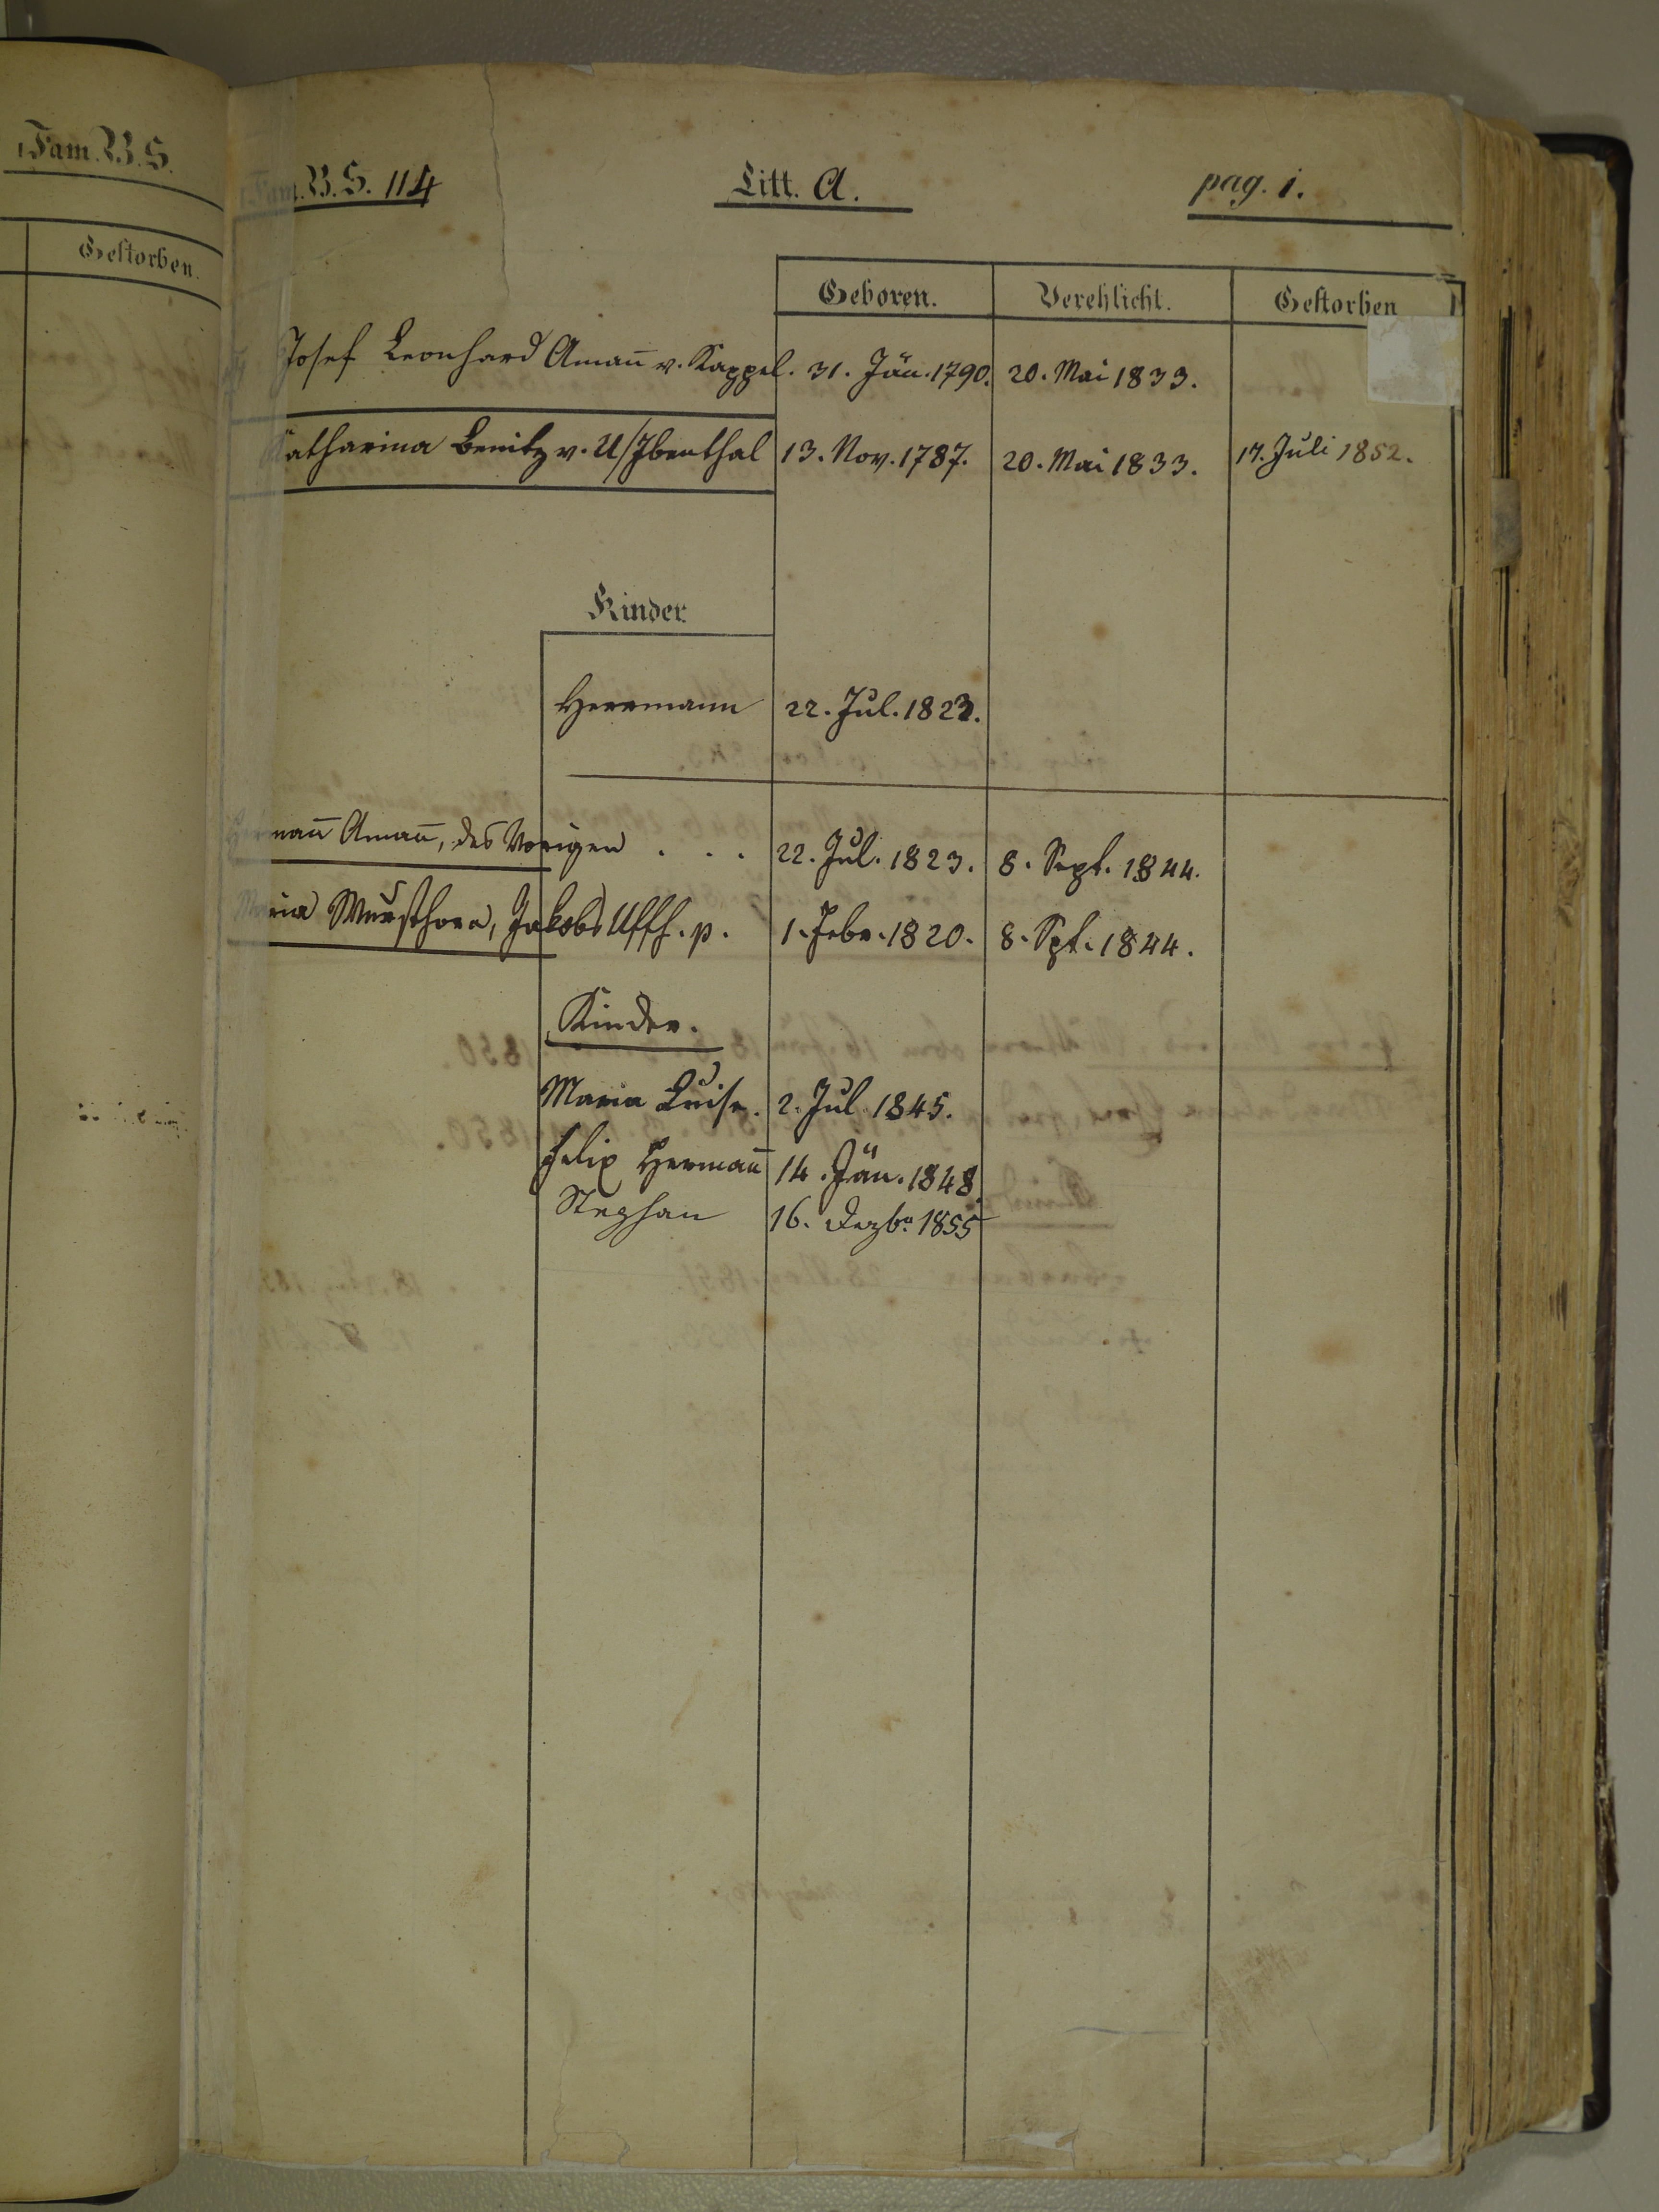 Fam. B. S.
Gestorben.
Fam. B. S. 114
Litt. A.
pag. 1.
Geboren. Verehlicht. Gestorben
Josef Leonhard Aman̅ v. Kappel. 31. Jän. 1790. 20. Mai 1833.
Katharina Benitz v. U/Ibenthal 13. Nov. 1787. 20. Mai 1833. 17. Juli 1852.
Kinder.
Herrmann 22. Jul. 1823.
Herman̅ Aman̅, des Vorigen . . . 22. Jul. 1823. 8. Sept. 1844.
Maria Wursthorn, Jakobs 1. Febr. 1820. 8. Spt. 1844.
Kinder.
Maria Luise. 2. Jul. 1845.
Felix Herman̅ 14. Jän. 1848.
Stephan 16. Dezbr 1855